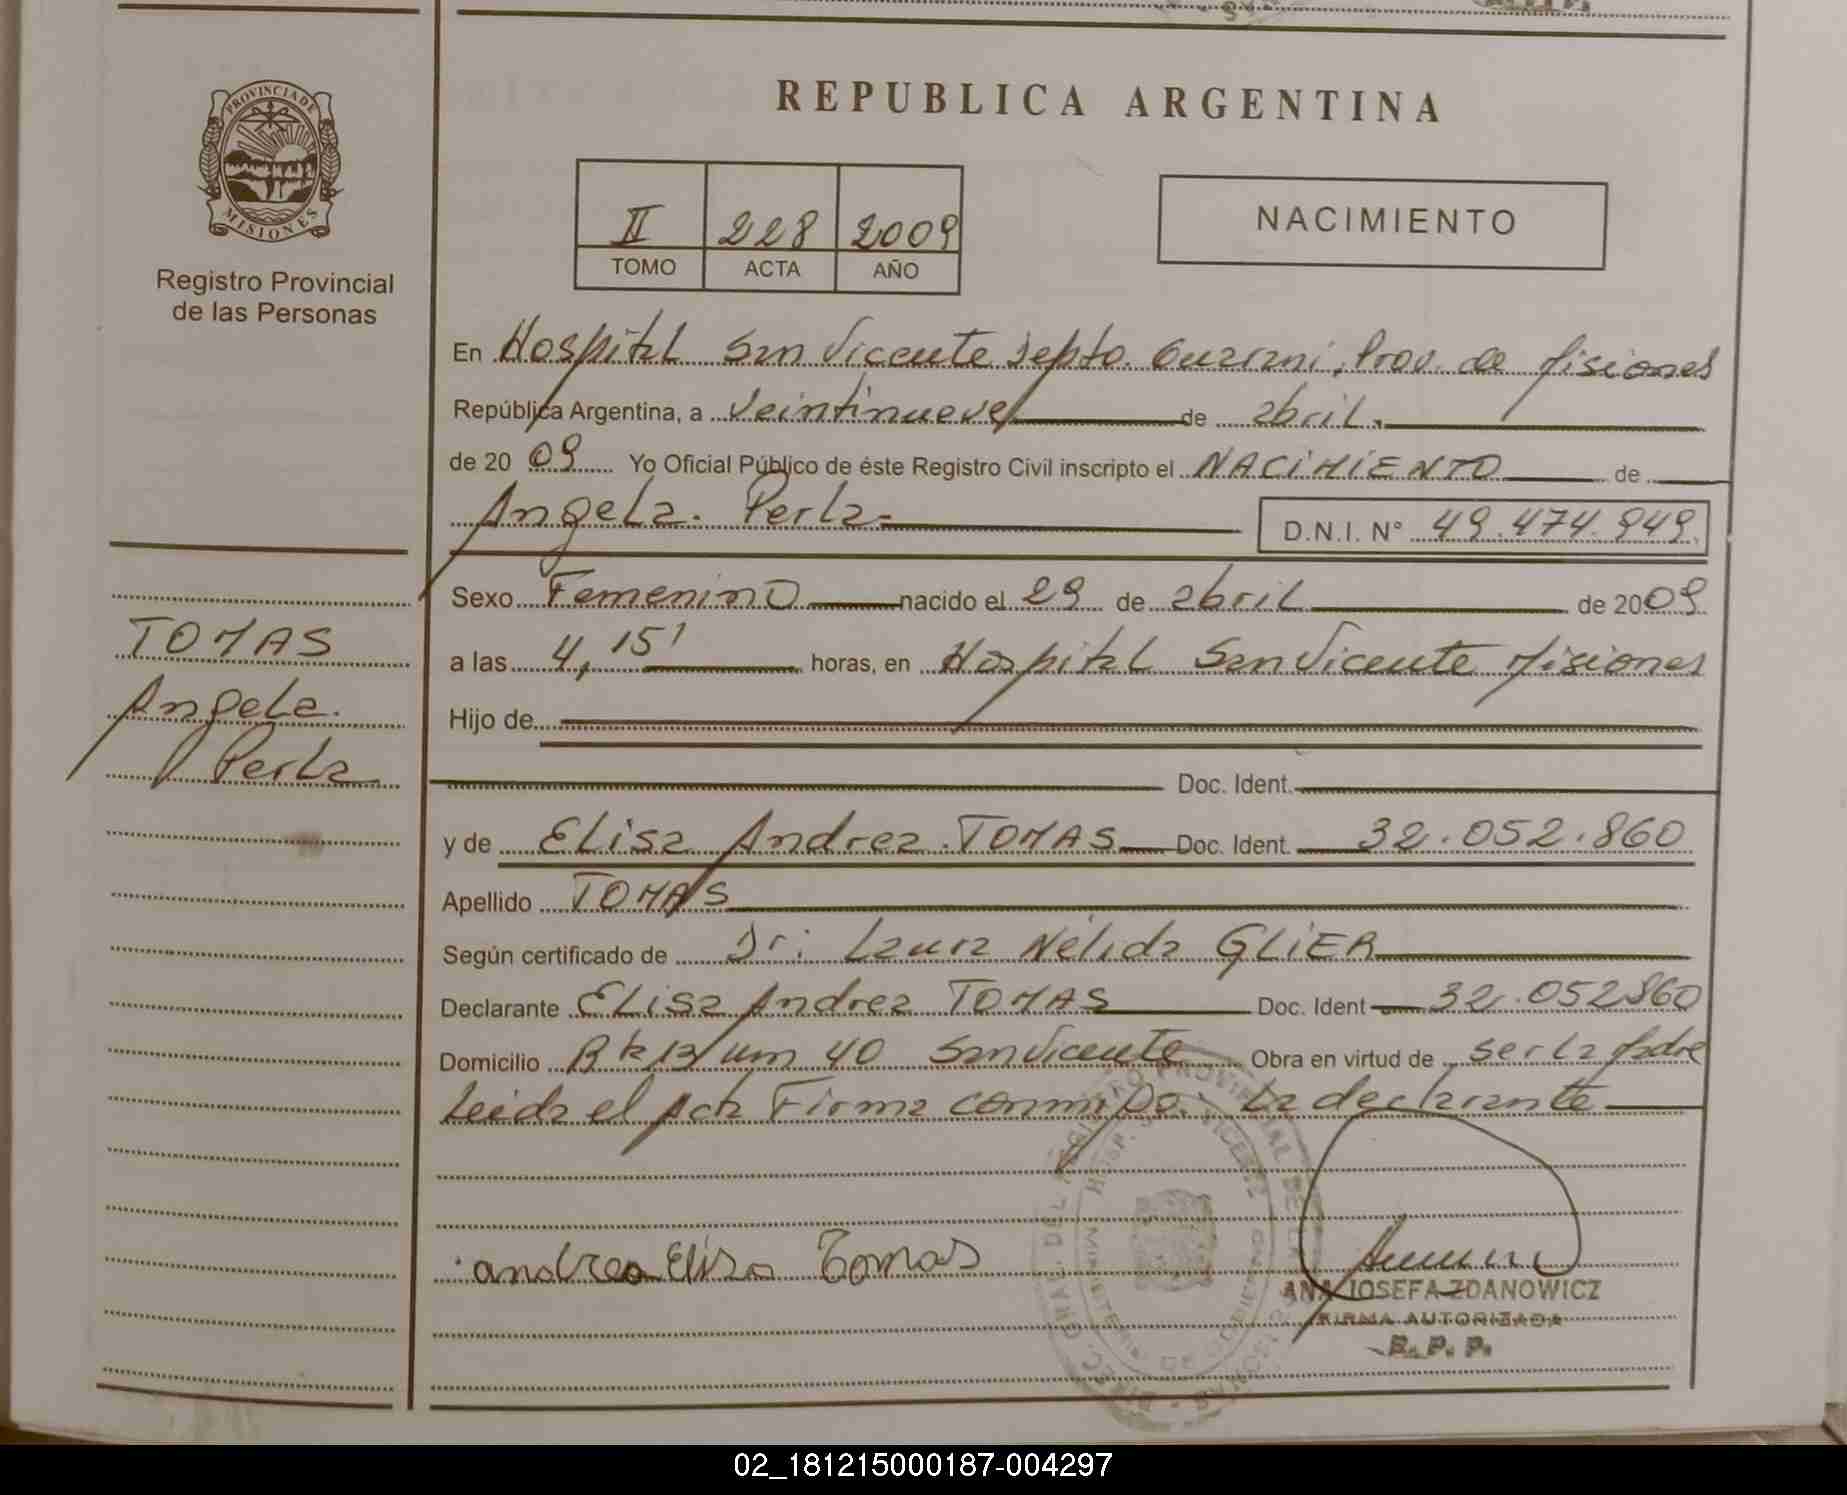 PROVINCIA DE
MISIONES
Registro Provincial
de las Personas
TOMAS
Angela
Perla
REPUBLICA ARGENTINA
II 228 2009
TOMO ACTA AÑO
NACIMIENTO
En Hospital San Vicente Depto. Guarani, Prov. de Misiones
República Argentina, a Veintinueve de abril.
de 20 09 Yo Oficial Público de éste Registro Civil inscripto el NACIMIENTO de
Angela Perla
D.N.I. N° 49.474.949
Sexo Femenino nacido el 29 de abril de 2009
a las 4,15' horas, en Hospital San Vicente Misiones
Hijo de
Doc. Ident.
y de Elisa Andrea TOMAS Doc. Ident. 32.052.860
Apellido TOMAS
Según certificado de Dr: Laura Nélida GLIER
Declarante Elisa Andrea TOMAS Doc. Ident 32.052860
Domicilio 40 San Vicente Obra en virtud de ser la Madre
Leida el Acta Firma conmigo. La declarante
andrea Elisa Tomas
ANA JOSEFA ZDANOWICZ
FIRMA AUTORIZADA
R. P. P.
02_181215000187-004297